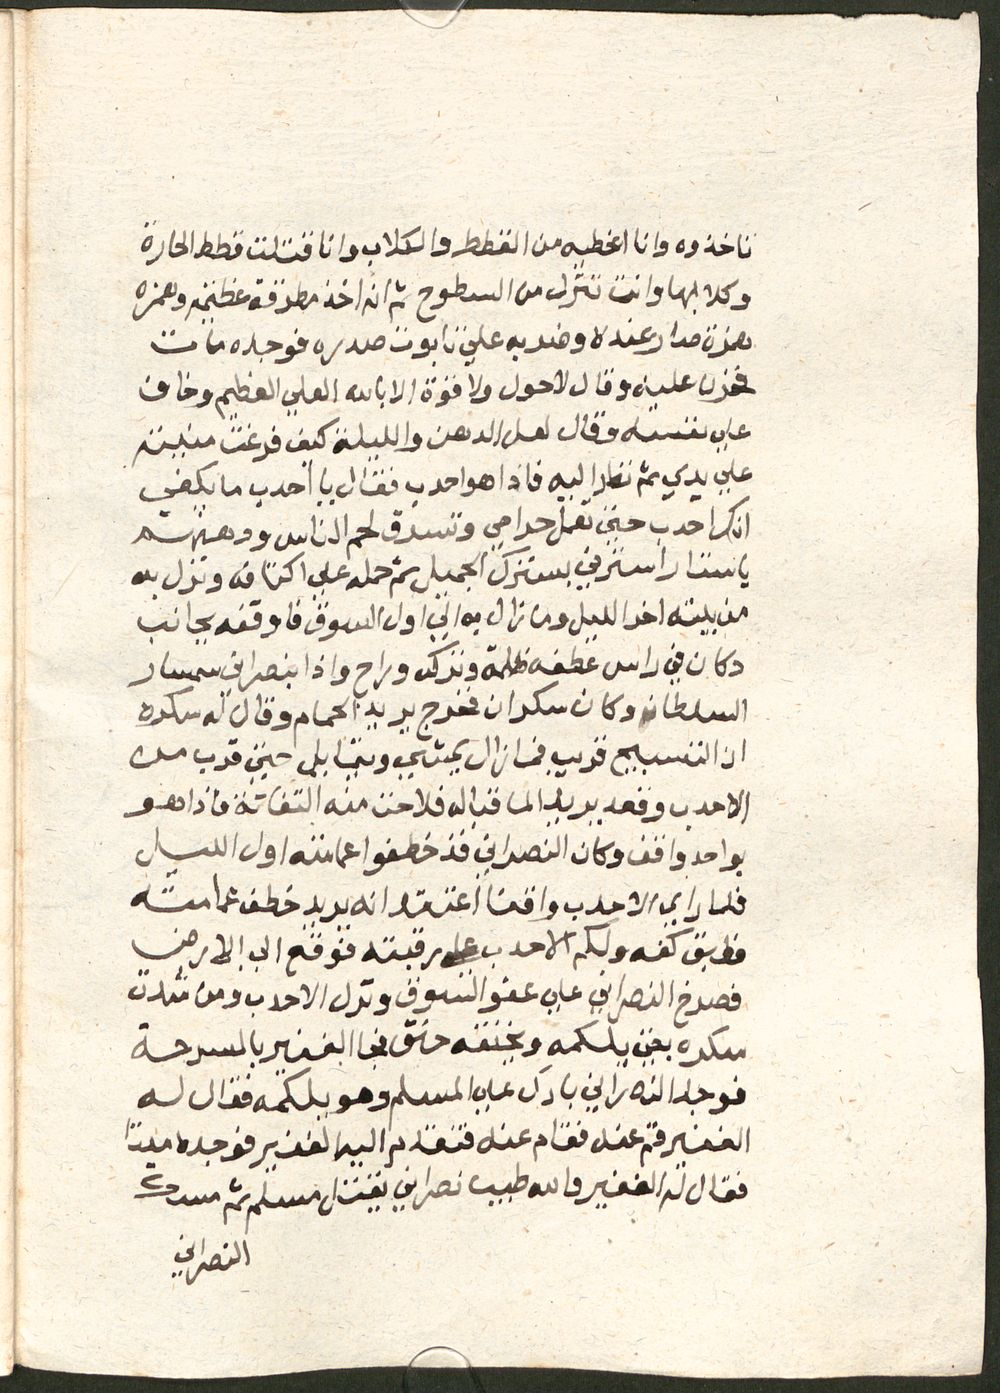 تاخذوه وانا اغطيه من القطط والكلاب وانا قتلت قطط الحارة
وكلابها وانت تنزل من السطوح ثم انه اخذ مطرقة عظيمه وهمزه
همزة صار عنده وضربه علي تابوت صدره فوجده مات
فحزن عليه وقال لاحول ولا قوة الا بالله العلي العظيم وخاف
علي نفسه وقال لعل الدهن والليلة كيف فرغت منيته
علي يدي ثم نظر اليه فاذا هو احدب فقال يا أحدب ما يكفي
انك احدب حتي تعمل حرامي وتسرق لحم الناس ودهنهم
يا ستار استرني بسترك الجميل ثم حمله علي اكتافه ونزل به
من بيته اخر الليل وما زال به الي اول السوق فاوقفه بجانب
دكان في راس عطفه ظلمة وتركه وراح واذا بنصراني سمسار
السلطان وكان سكران فخرج يريد الحمام وقال له سكره
ان التسبيح قريب فما زال يمشي ويتمايل حتي قرب من
الاحدب وقعد يريد الما قباله فلاحت منه التفاتة فاذا هو
بواحد واقف وكان النصراني قد خطفوا عمامته اول الليل
فلما راي الاحدب واقفا اعتقد انه يريد خطف عمامته
فطبق كفه ولكم الاحدب علي رقبته فوقع الي الارض
فصرخ النصراني علي غفر السوق ونزل الاحدب ومن شدت
سكره بقي يلكمه ويخنقه خنق فجا الغفير بالمسرجة
فوجد النصراني بارك علي المسلم وهو يلكمه فقال له
الغفير قم عنه فقام عنه فتقدم اليه الغفير فوجده ميتا
فقال له الغفير والله طيب نصراني يقتل مسلم ثم مسك
النصراني